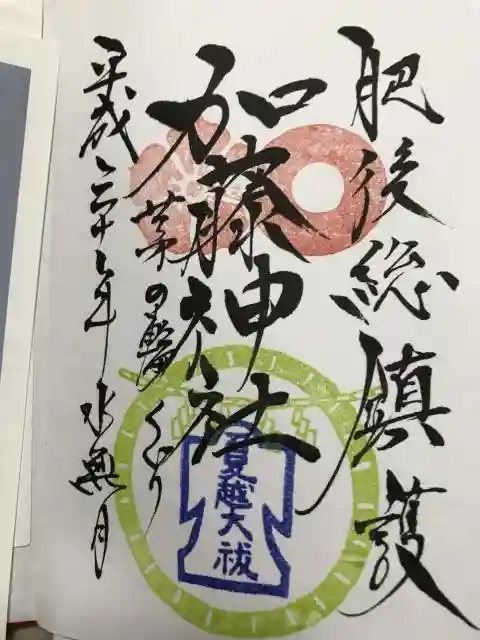 肥後総鎮護
加藤神社
茅の輪くぐり
平成二十七年水無月
夏越大祓